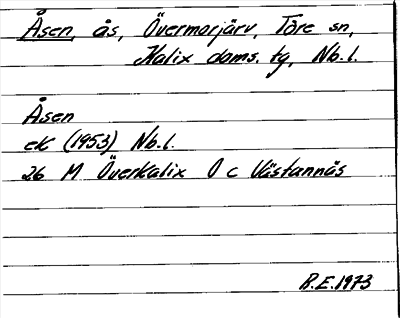 Åsen, ås, Övermorjärv, Töre sn,
Kalix doms. tg, Nb.l.
Åsen
ek (1953) Nb.l.
26 M Överkalix O c Västannäs
R.E.1973